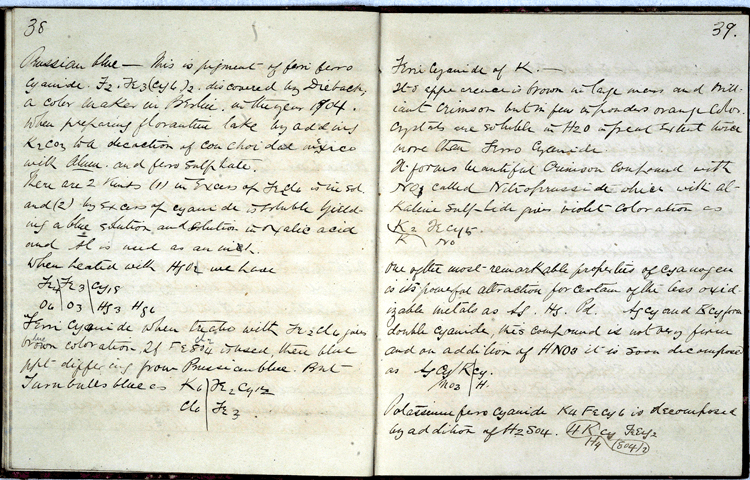 38
Prussian blue — This is pigment of ferri ferro
cyanide. Fe2. Fe3(Cy6)2. discovered by Diebach,
a color maker in Berlin, in the year 1704.
When preparing florantine lake by adding
K2CO3 to a decoction of
with Alum. and ferro sulphate.
There are 2 kinds (1) in Excess of is in sol
and (2) by Excess of cyanide is soluble yield-
ing a blue solution and solution in oxalic acid
and It is used as an ink.
When heated with HgO2 we have
Fe4 Fe3 Cy18
O6 O3 Hg3 Hg6
Ferri Cyanide when with gives
brown coloration. If is used, then blue
ppt differing from Prussian blue. But
Turnbulls blue as K6 Fe2 Cy12
Cl6 Fe3
39.
Ferri Cyanide of K. —
Its appearence is brown in large mass and Brill-
iant Crimson but in fine powder orange color.
Crystals are soluble in H2O in great Extent twice
more than Ferro Cyanide
It forms beautiful Crimson Compound with
called Nitroprusside which with al-
kaline Sulphide gives violet coloration as
K2 FeCy5.
K No
One of the most remarkable properties of cyanogen
is its powerful attraction for certain of the less oxid-
izable metals as Ag. Hg. Pd. Ag cy and K cy form
double cyanide, this compound is not very firm
and on addition of HNO3 it is soon decompose
as Ag Cy K cy.
NO3 H.
Potassium ferro cyanide K4 FeCy6 is decomposed
by addition of H2SO4. 4 K cy FeCy2
H4 (SO4)2